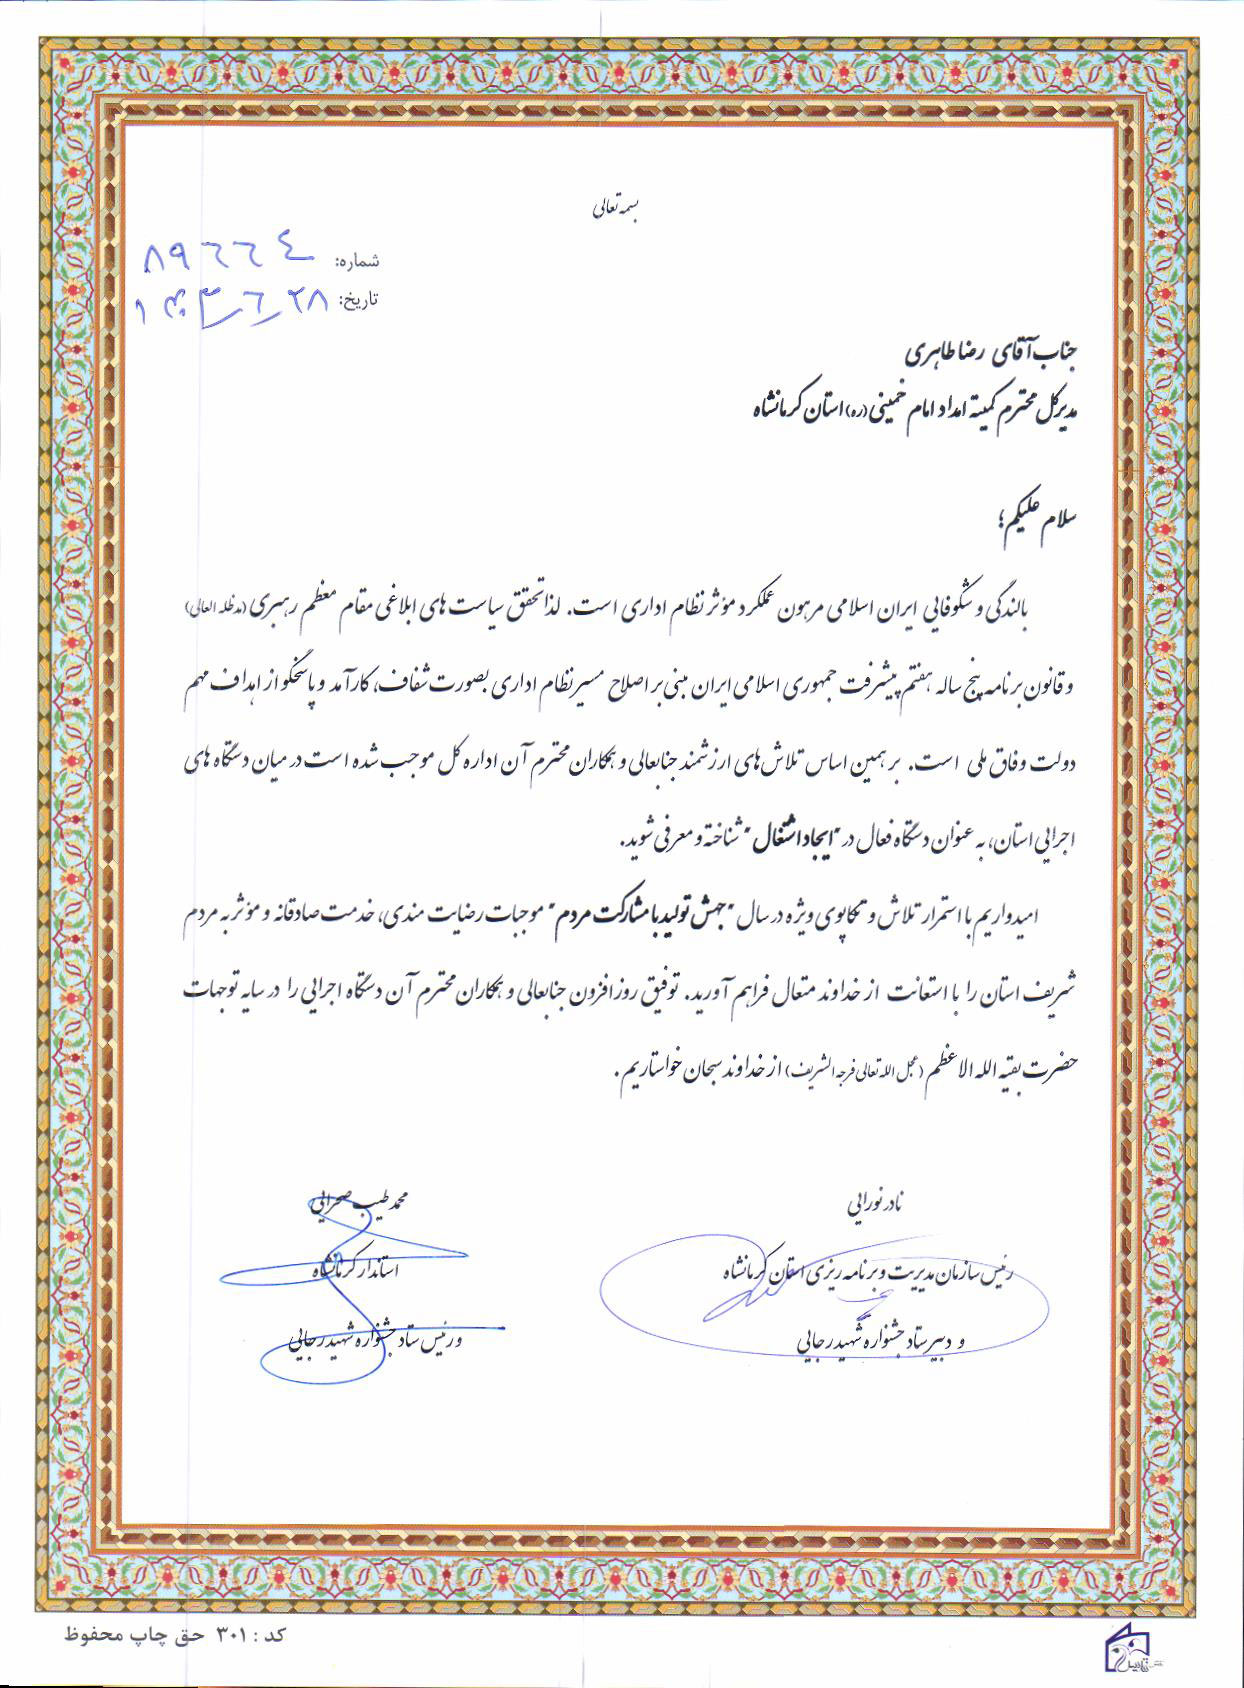 بسمه تعالی
شماره: ۸۹۶۶۴
تاریخ: ۱۴۰۳/۶/۲۸
جناب آقای رضا طاهری
مدیرکل محترم کمیته امداد امام خمینی (ره) استان کرمانشاه
سلام علیکم؛
بالندگی و شکوفایی ایران اسلامی مرهون عملکرد مؤثر نظام اداری است. لذا تحقق سیاست های ابلاغی مقام معظم رهبری (مدظله العالی)
و قانون برنامه پنج ساله هفتم پیشرفت جمهوری اسلامی ایران مبنی بر اصلاح مسیر نظام اداری بصورت شفاف، کارآمد و پاسخگو از اهداف مهم
دولت وفاق ملی است. بر همین اساس تلاش های ارزشمند جنابعالی و همکاران محترم آن اداره کل موجب شده است در میان دستگاه های
اجرایی استان، به عنوان دستگاه فعال در "ایجاد اشتغال" شناخته و معرفی شوید.
امیدواریم با استمرار تلاش و تکاپوی ویژه در سال "جهش تولید با مشارکت مردم" موجبات رضایت مندی، خدمت صادقانه و مؤثر به مردم
شریف استان را با استعانت از خداوند متعال فراهم آورید. توفیق روزافزون جنابعالی و همکاران محترم آن دستگاه اجرایی را در سایه توجهات
حضرت بقیه الله الاعظم (عجل الله تعالی فرجه الشریف) از خداوند سبحان خواستاریم.
نادر نورایی
رئیس سازمان مدیریت و برنامه ریزی استان کرمانشاه
و دبیر ستاد جشنواره شهید رجایی
محمد طیب صحرایی
استاندار کرمانشاه
و رئیس ستاد جشنواره شهید رجایی
کد : ۳۰۱ حق چاپ محفوظ